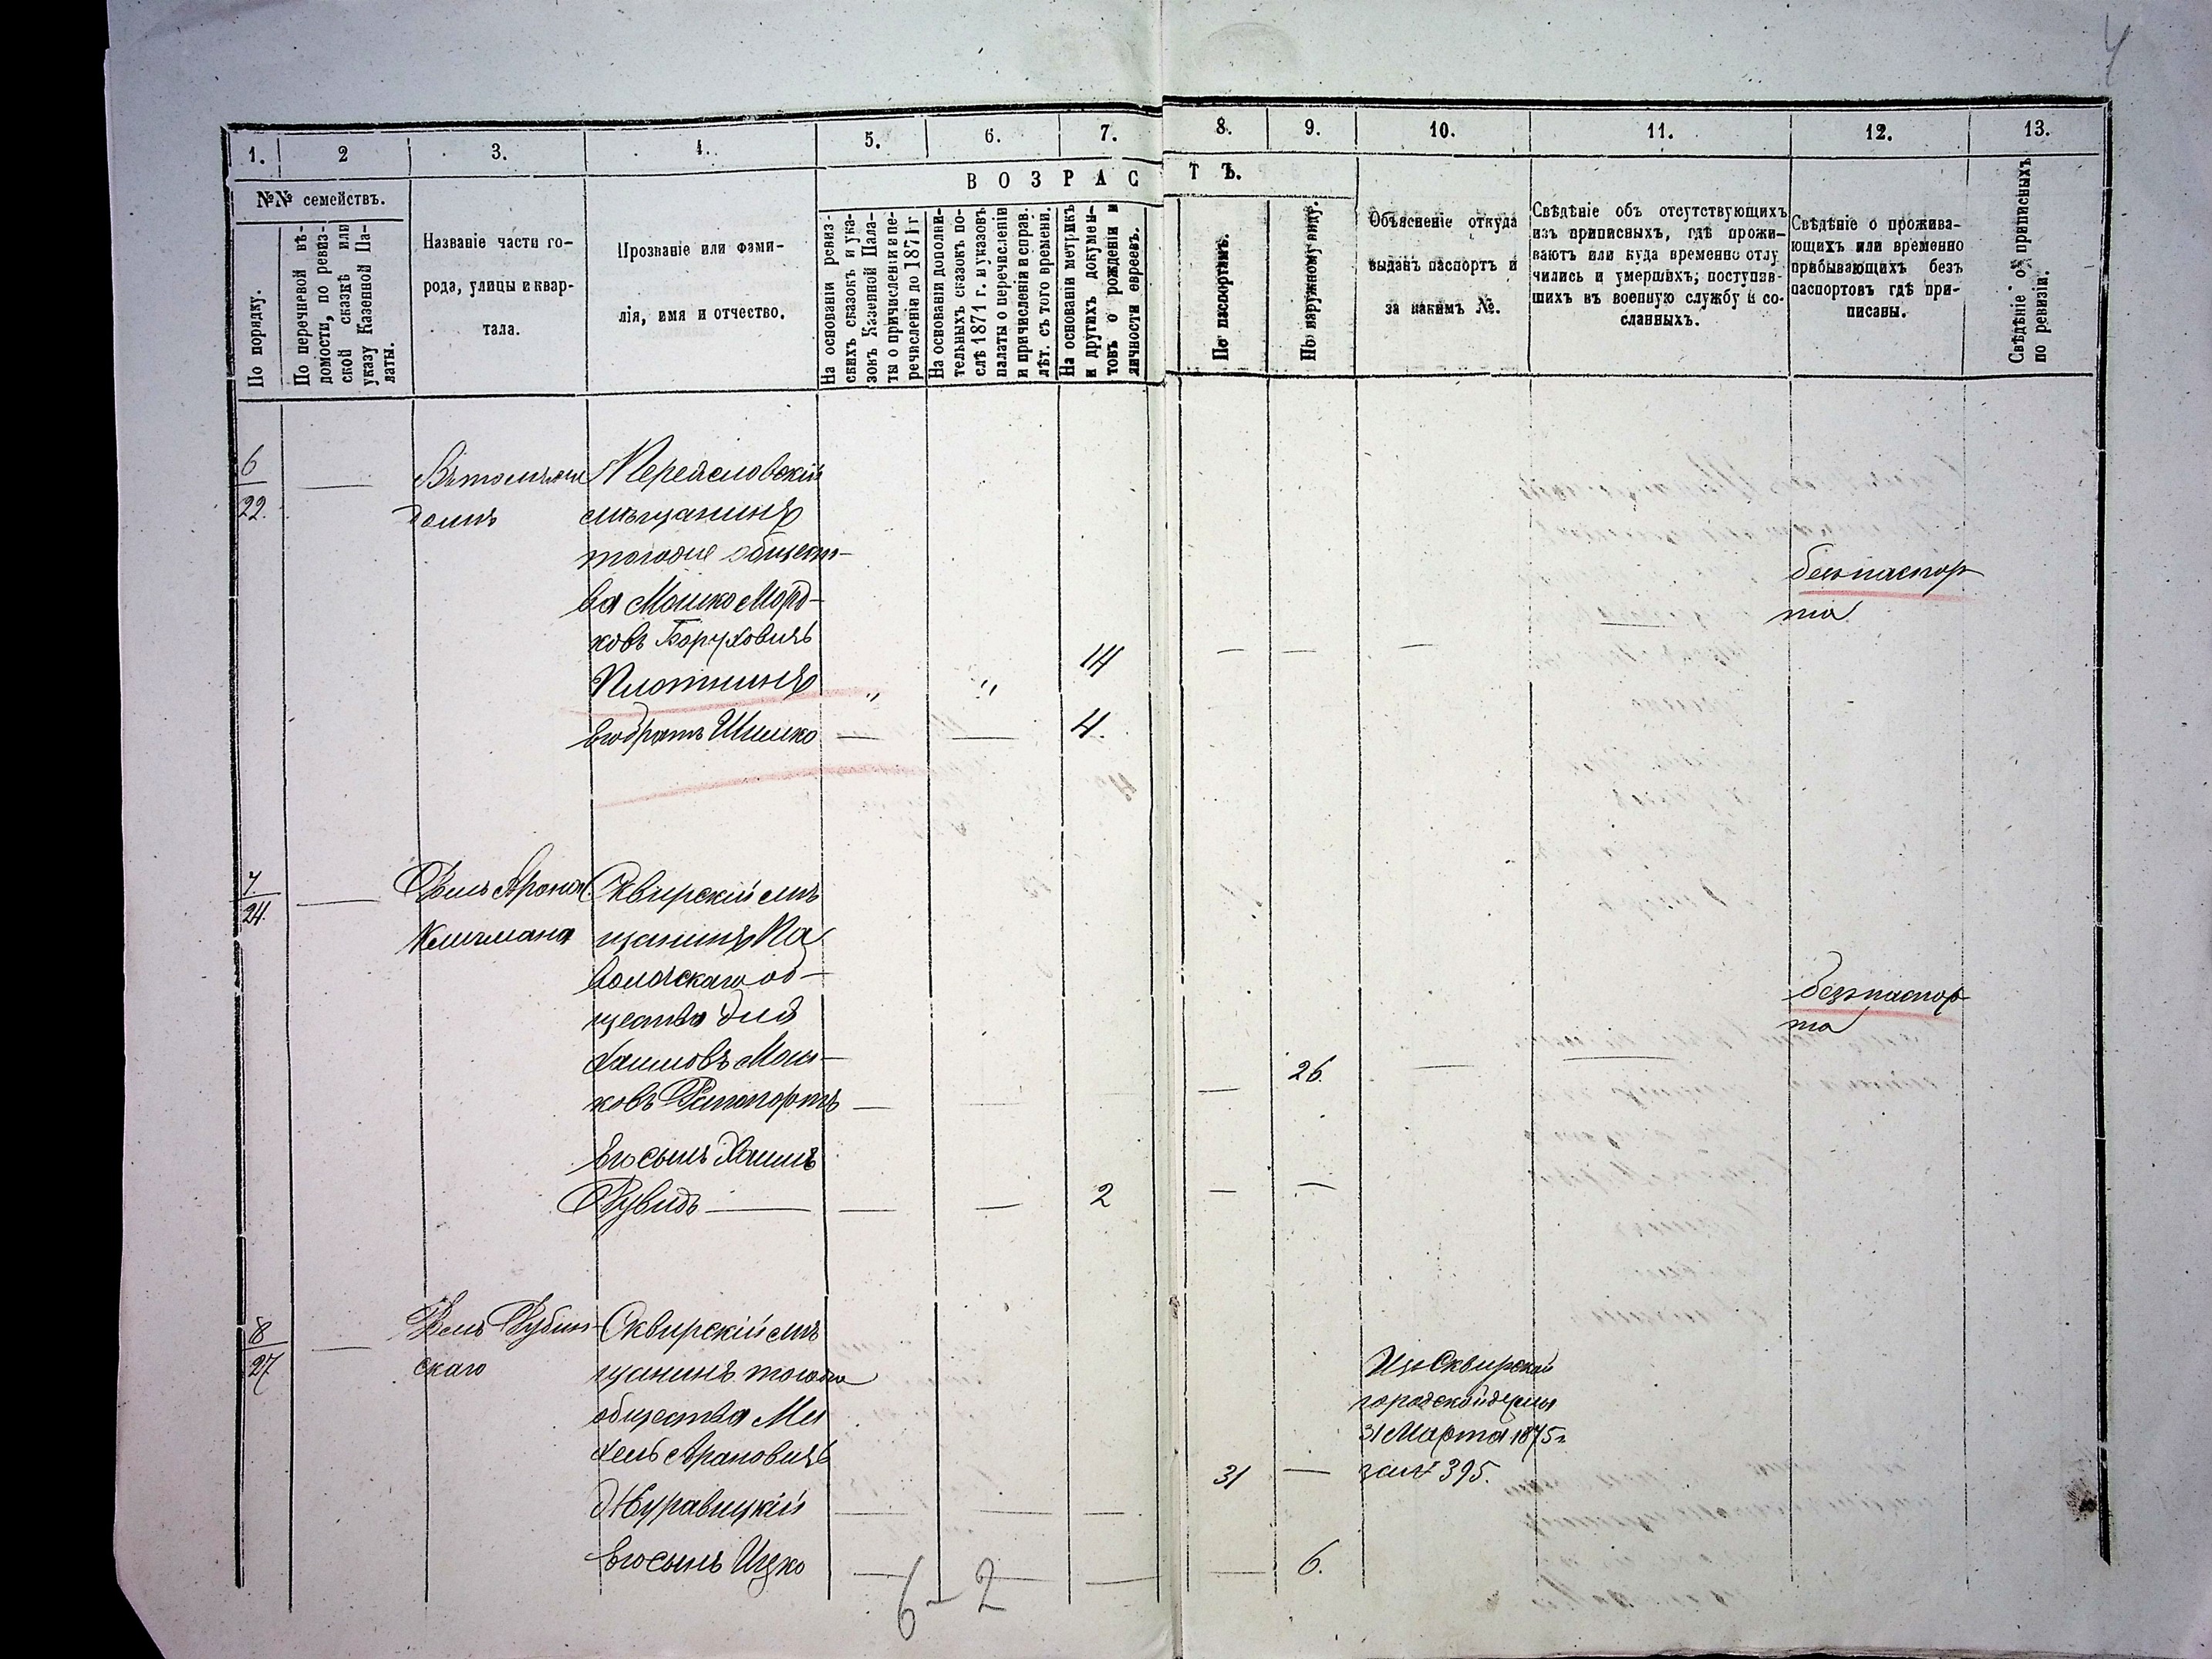 4
1.
2
3.
4.
5.
6.
7.
8.
9.
10.
11.
12.
13.
№№ семействъ.
ВОЗРАСТЪ.
По порядку.
По перечневой вѣ-
домости, по ревиз-
ской сказкѣ или
указу Казенной Па-
латы.
Названіе части го-
рода, улицы и квар-
тала.
Прозваніе или фами-
лія, имя и отчество.
На основаніи ревиз-
скихъ сказокъ и ука-
зокъ Казенной Пала-
ты о причисленіи и пе-
речисленіи до 1871 г
На основаніи дополни-
тельныхъ сказокъ по-
слѣ 1871 г. и указовъ
палаты о перечисленіи
и причисленіи и справ.
лѣт. съ того времени.
На основаніи метрикъ
и другихъ докумен-
товъ о рожденіи и
личности евреевъ.
По паспортимъ.
По наружному виду.
Объясненіе откуда
выданъ паспортъ и
за какимъ №.
Свѣдѣніе объ отсутствующихъ
изъ приписныхъ, гдѣ прожи-
ваютъ или куда временно отлу
чились и умершихъ; поступав-
шихъ въ военную службу и со-
сланныхъ.
Свѣдѣніе о прожива-
ющихъ или временно
прибывающихъ безъ
паспортовъ гдѣ при-
писаны.
Свѣдѣніе о приписныхъ
по ревизіи.
6
22.
Въ томъ же
домѣ
Переяславскій
мѣщанинъ
тогоже общест-
ва Мошко Морд-
ковъ Боруховичъ
Плотникъ „ „ 14
его братъ Шимко — — 4.
безъ паспор
та
7
24.
Домъ Арона
Клигмана
Сквирскій мѣ
щанинъ Па
волочскаго об-
щества
Хаимовъ Мош-
ковъ Рапопортъ — — — 26. —
его сынъ Хаимъ
Рувидъ — — — 2 — —
безъ паспор
та
8
27
Домъ Рубин-
скаго
Сквирскій мѣ
щанинъ тогоже
общества Ми
хель Ароновичъ
Журавицкій — — — 31 —
его сынъ Ицко — — — — 6.
Изъ Сквирской
городской думы
31 Марта 1875 г.
за № 395.
6 - 2